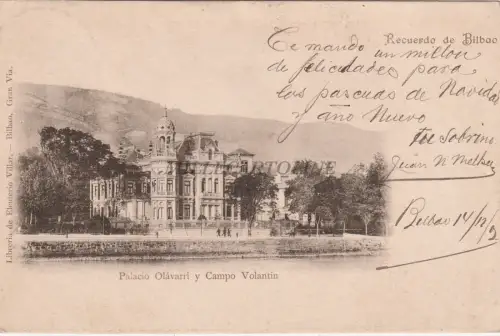 Recuerdo de Bilbao
Te mando un millon
de felicidades para
las pascuas de Navidad
y año Nuevo
tu Sobrino
Juan N
Bilbao 14/12/
Librería de Eleuterio Villar, Bilbao, Gran Vía.
Palacio Olávarri y Campo Volantin